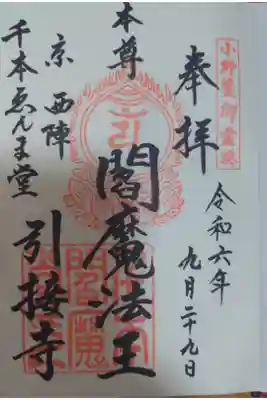 小野篁御霊跡
奉拝
令和六年
九月二十九日
本尊
閻魔法王
京西陣
千本ゑんま堂
引接寺